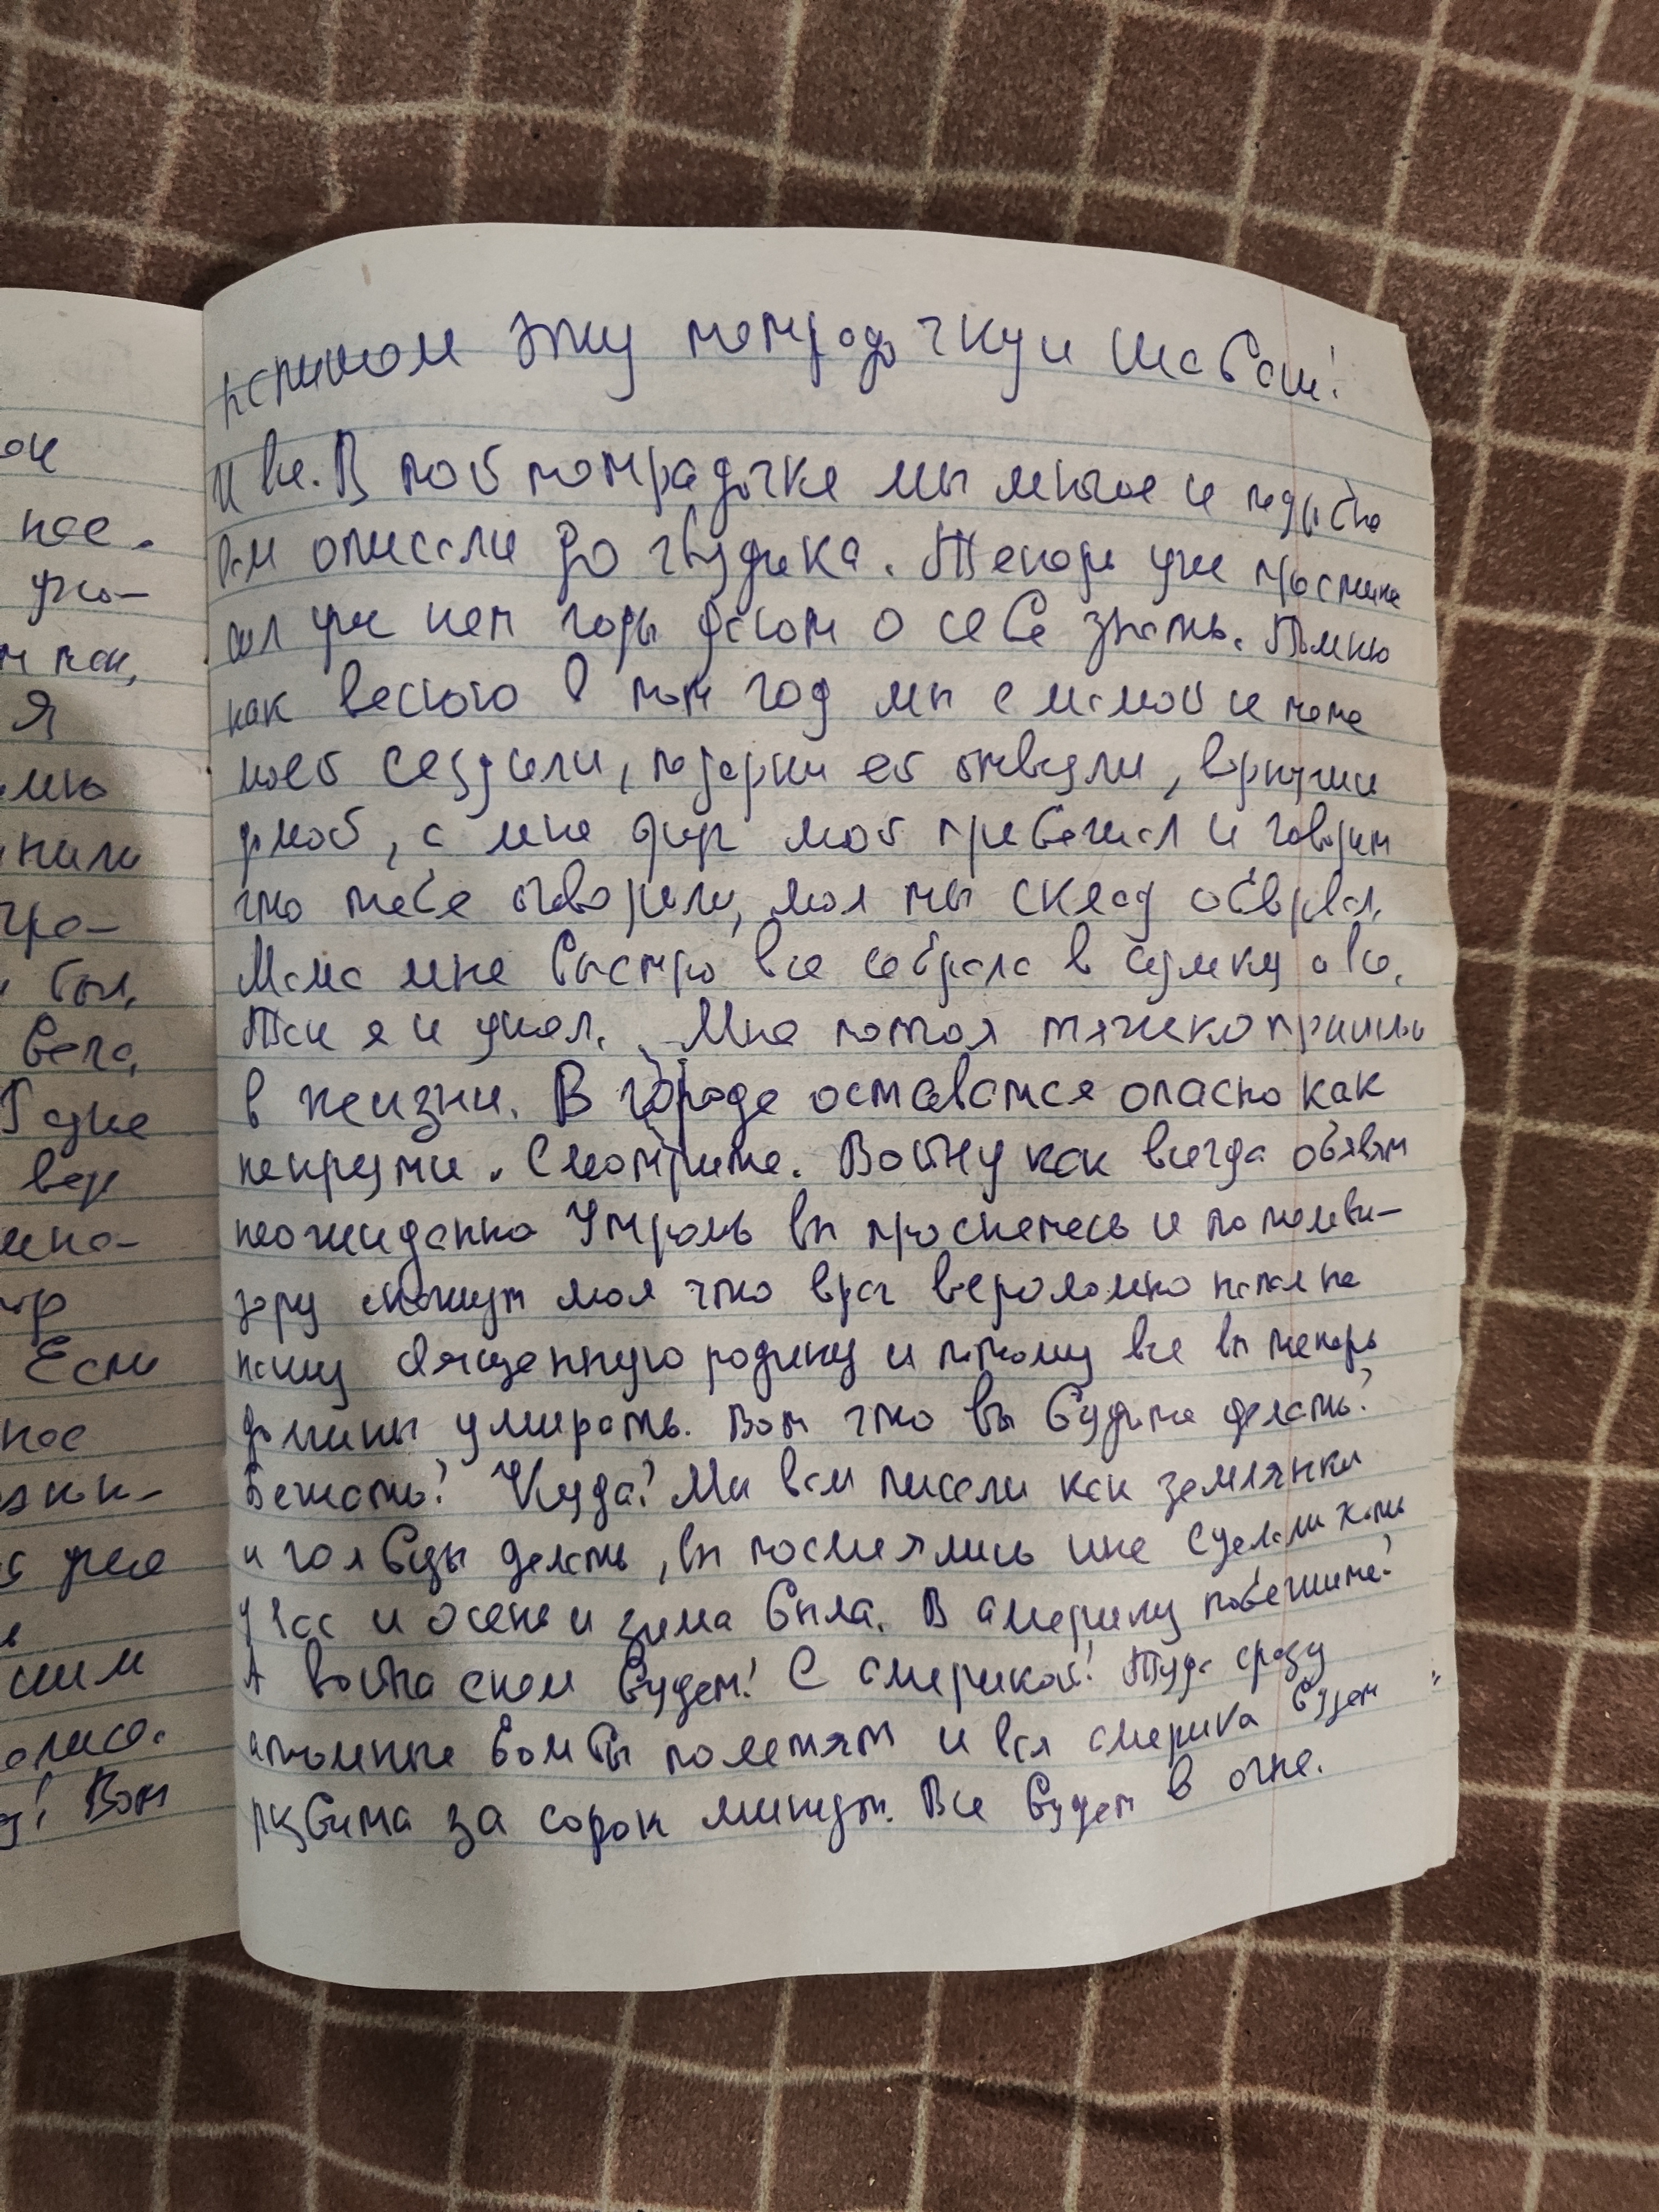 эту тетрадочку и шабаш!
И все. В той тетрадочке мы многое и подробно
вам описали до гвоздика. Теперь уже
сил уже нет годы дают о себе знать. Помню
как весною в тот год мы с мамой и
моей сездили, подарки ей отвезли,
домой, а мне друг мой прибежал и говорит
что тебя оговорили, мол ты склад обворовал.
Мама мне быстро все собрала в сумку и все.
Так я и ушол. Мне потом тяжеко пришлось
в жизни. В городе оставатся опасно как
некрути. Смотрите. Войну как всегда обявят
неожиданно Утромь вы проснетесь и по телеви-
зору скажут мол что враг вероломно напал на
нашу священную родину и потому все вы теперь
должны умирать. Вот что вы будите делать?
Бежать? Куда? Мы вам писали как землянки
и голбцы делать, вы посмеялись и не сделали хоть
у вас и осень и зима была. В америку побежите?
А война с кем будет? С америкой! Туда сразу
атомные бомбы полетят и вся америка будет
разбита за сорок минут. Все будет в огне.
ок
нас.
ужо-
Я
нили
был,
вера,
вер
Если
нас
уже
сим
Вот